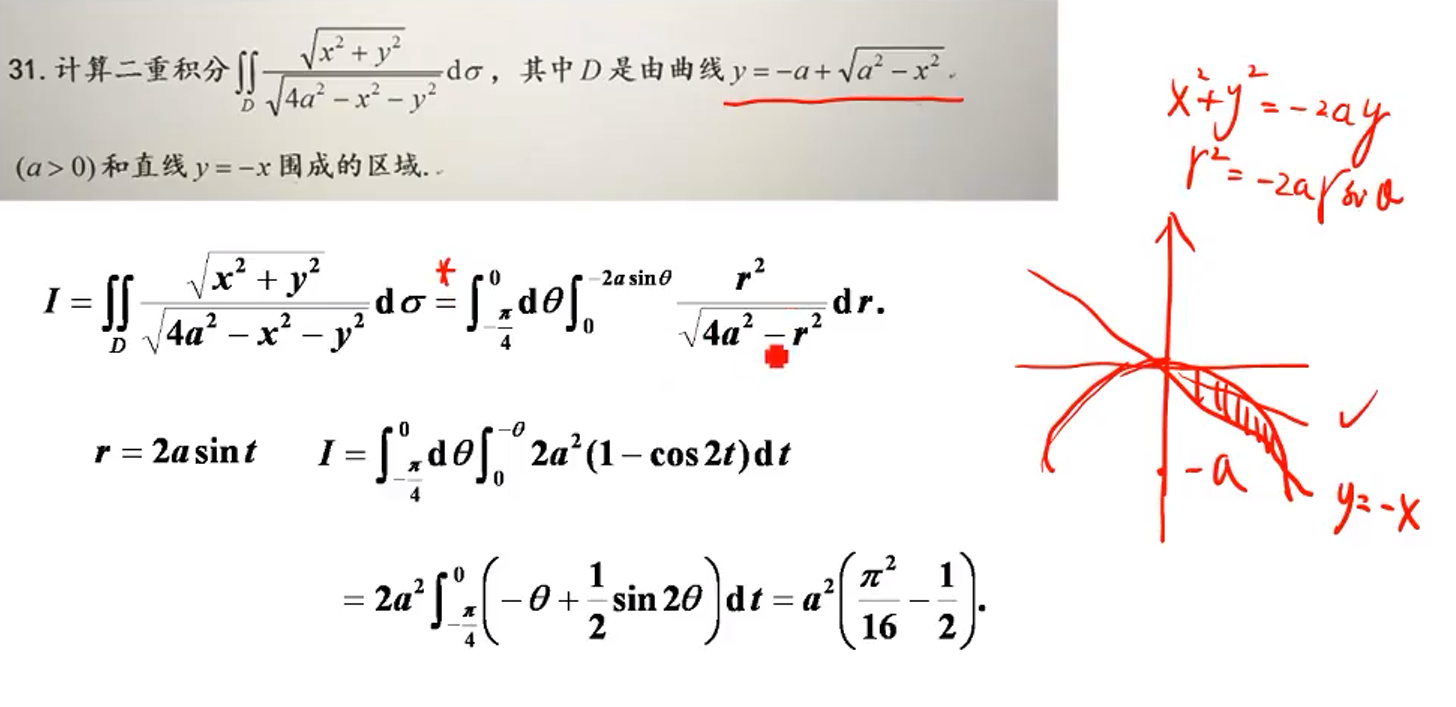 31. 计算二重积分 ∬_D √(x² + y²) / √(4a² − x² − y²) dσ, 其中 D 是由曲线 y = −a + √(a² − x²).
(a > 0) 和直线 y = −x 围成的区域..
x² + y² = −2ay
r² = −2ar sin θ
I = ∬_D √(x² + y²) / √(4a² − x² − y²) dσ = ∫_{−π/4}^{0} dθ ∫_{0}^{−2a sin θ} r² / √(4a² − r²) dr.
r = 2a sin t I = ∫_{−π/4}^{0} dθ ∫_{0}^{−θ} 2a²(1 − cos 2t)dt
−a
y = −x
= 2a² ∫_{−π/4}^{0} (−θ + 1/2 sin 2θ) dt = a² (π²/16 − 1/2).